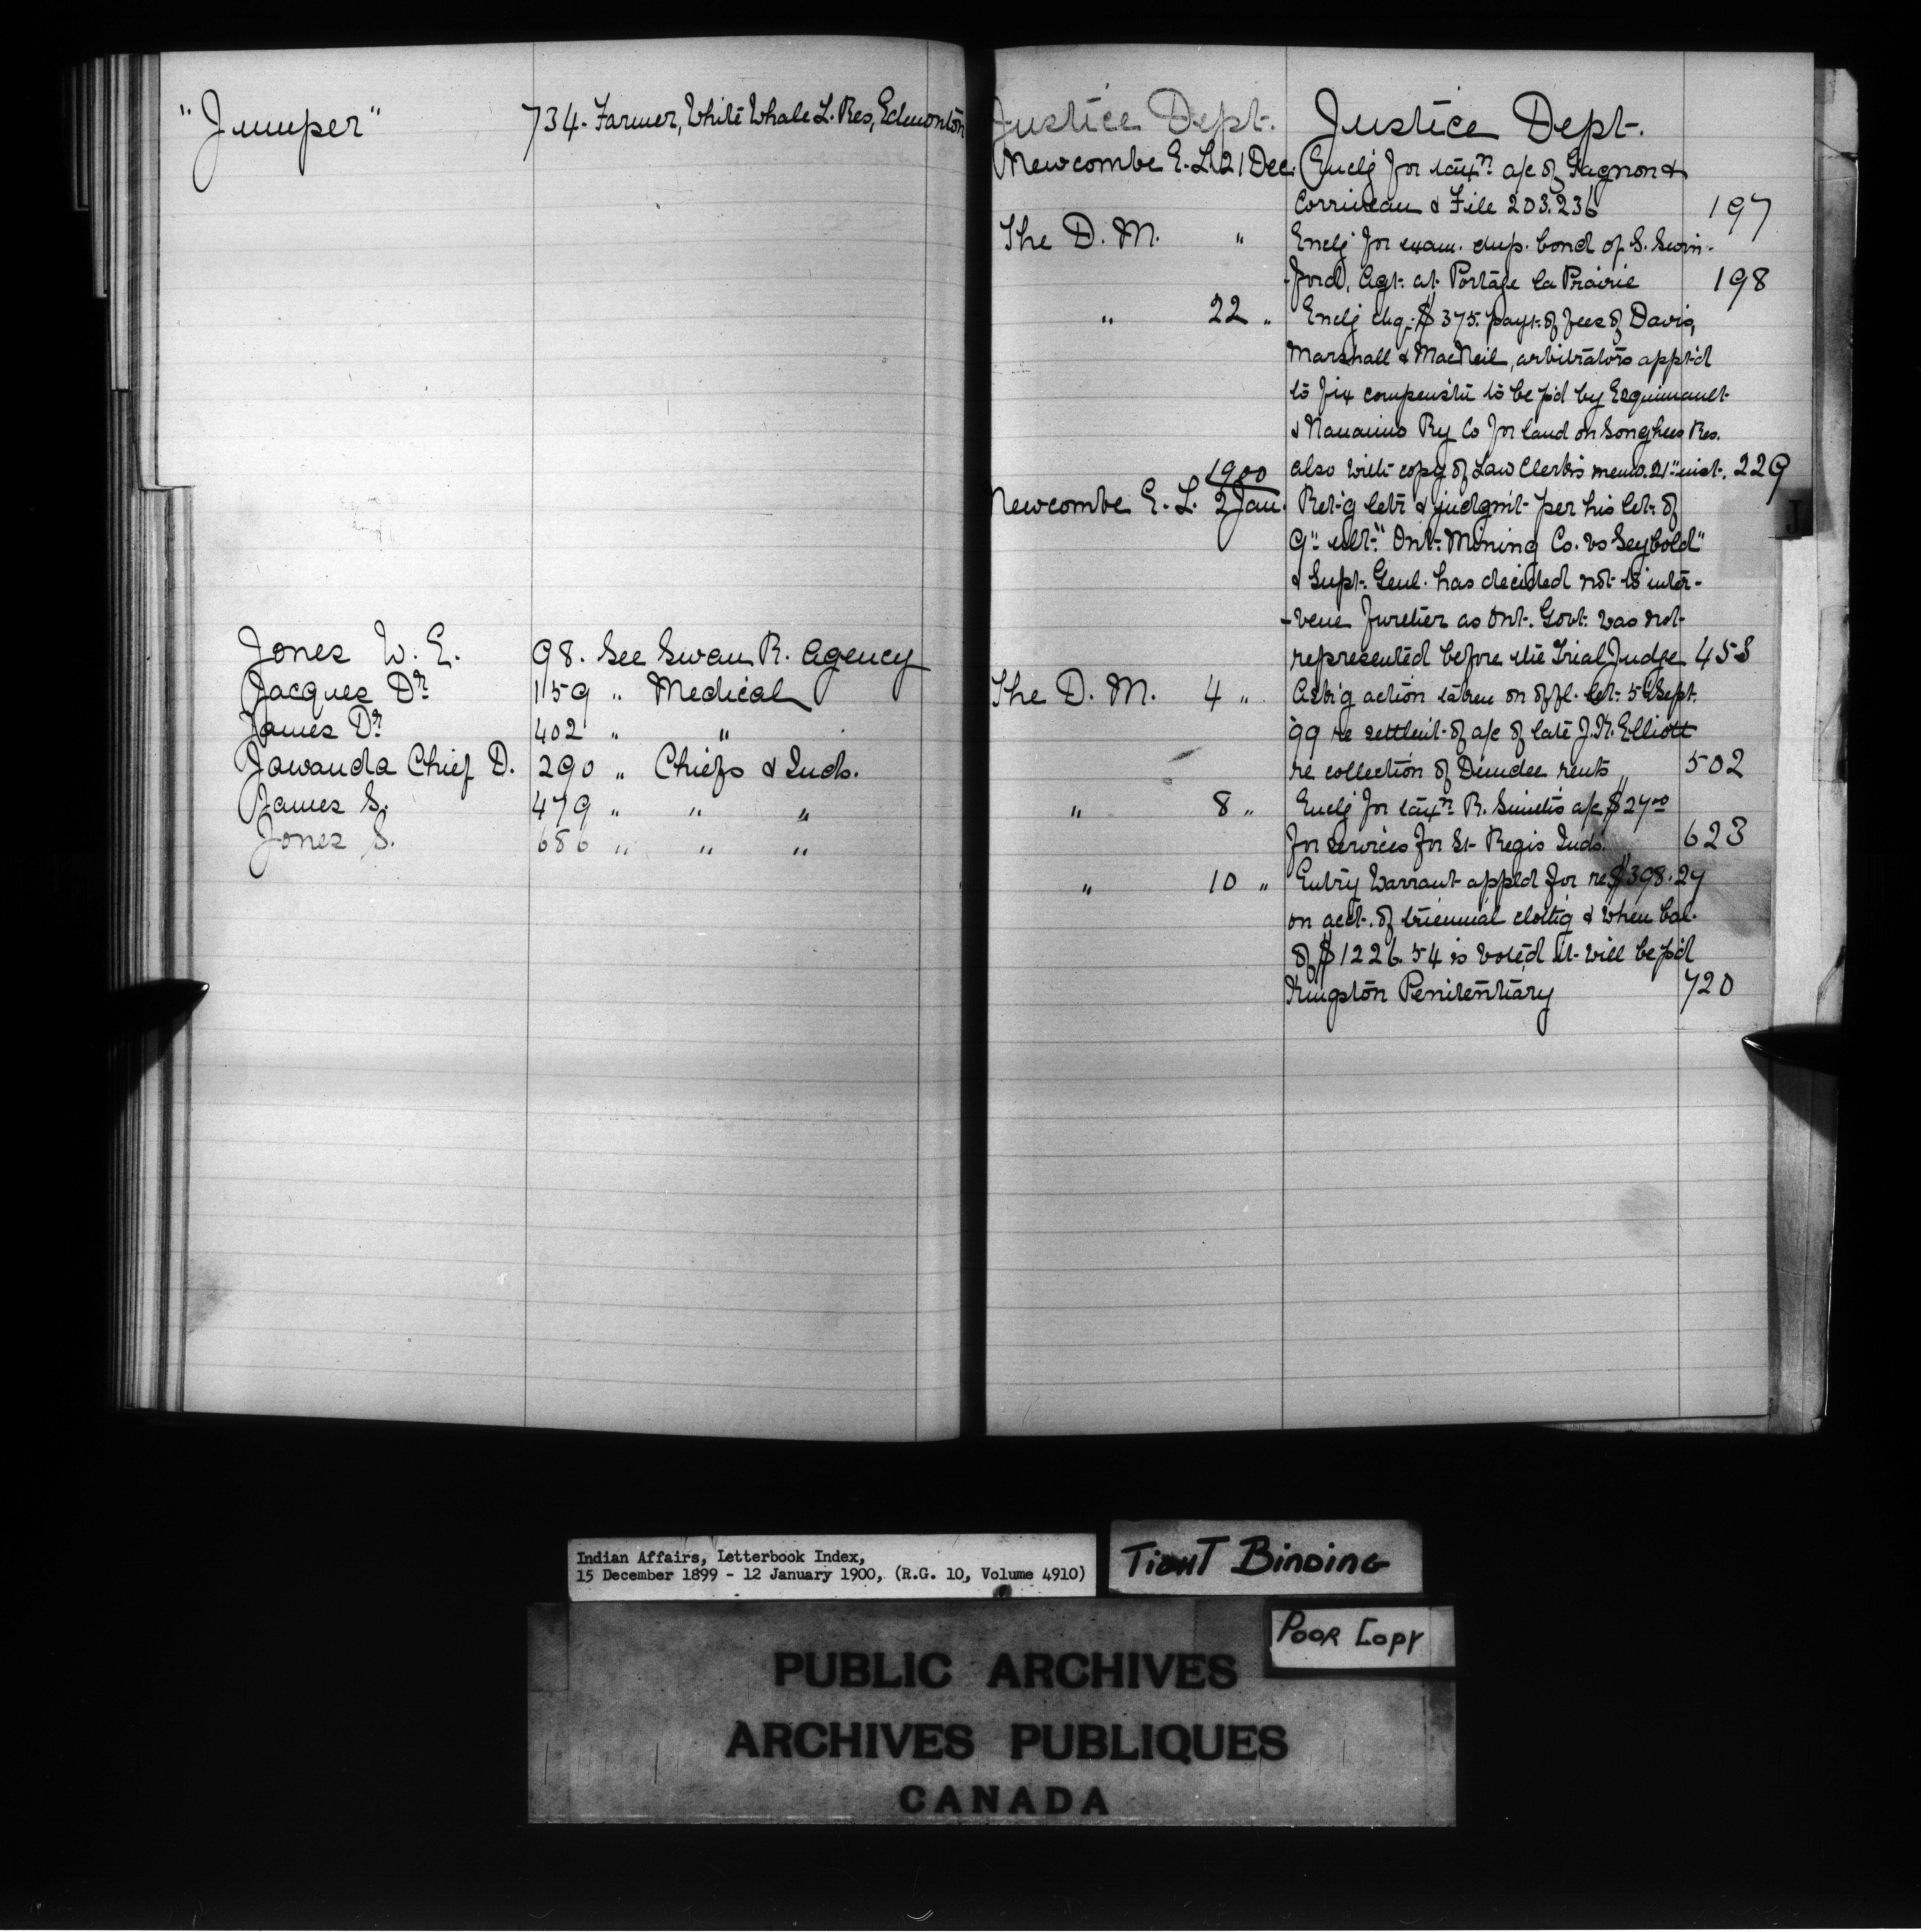 "Jumper" 734. Farmer, White Whale L. Res, Edmonton
Jones W. E. 98. See Swan R. Agency
Jacques Dr. 159 " Medical
James Dr. 402 " "
Jawanda Chief D. 290 " Chiefs & Inds.
James S. 479 " " "
Jones S. 686 " " "
Justice Dept. Justice Dept.
Newcombe E. L. 21 Dec. Enclg for taxn a/c of Gagnon &
Corriveau & File 203.236 197
The D. M. " Enclg for exam. dup. bond of S. Swin-
-ford, Agt. at Portage la Prairie 198
" 22 " Enclg chq. $375. payt. of fees of Davis,
Marshall & MacNeil, arbitrators appt'd
to fix compenstn to be p'd by Esquimault
& Nanaimo Ry Co for land on Songhees Res.
also with copy of Law Clerk's memo. 21st inst. 229
1900
Newcombe E. L. 2 Jan. Ret'g letr & judgm't per his let. of
9" ult. "Ont. Mining Co. vs Seybold"
& Supt. Genl. has decided not to inter-
-vene further as Ont. Govt. was not
represented before the Trial Judge 453
The D. M. 4 " Ask'g action taken on offl. let. 5th Sept.
'99 re settlem't of a/c of late J. K. Elliott
re collection of Dundee rents 502
" 8 " Enclg for taxn R. Smith's a/c $27.00
for services for St Regis Inds. 623
" 10 " Warrant appld for re $398.27
on acct. of triennial clothg & when bal.
of $1226.54 is voted it will be p'd
Kingston Penitentiary 720
J
Indian Affairs, Letterbook Index,
15 December 1899 - 12 January 1900, (R.G. 10, Volume 4910)
TIGHT BINDING
POOR COPY
PUBLIC ARCHIVES
ARCHIVES PUBLIQUES
CANADA